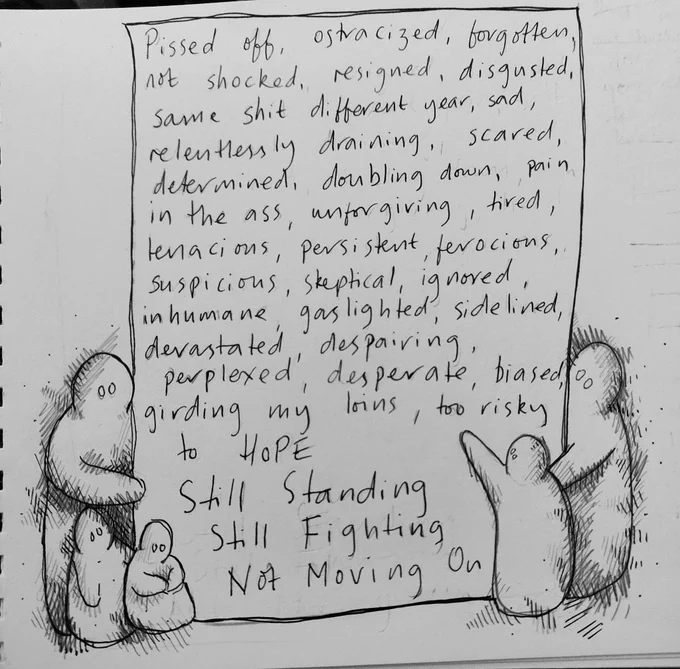 Pissed off, ostracized, forgotten,
not shocked, resigned, disgusted,
same shit different year, sad,
relentlessly draining, scared,
determined, doubling down, pain
in the ass, unforgiving, tired,
tenacious, persistent, ferocious,
suspicious, skeptical, ignored,
inhumane, gaslighted, sidelined,
devastated, despairing,
perplexed, desperate, biased,
girding my loins, too risky
to HOPE
Still Standing
Still Fighting
Not Moving On